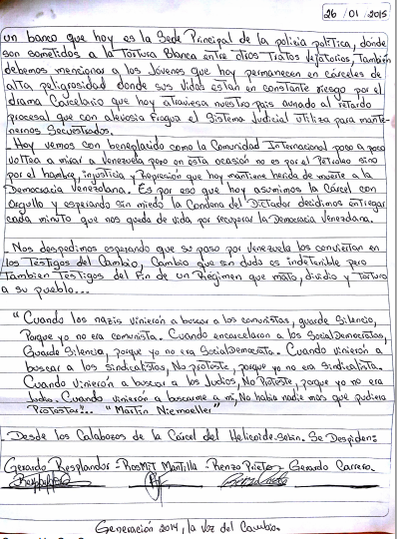 26 / 01 / 2015
un banco que hoy es la Sede Principal de la policia política, donde
son sometidos a la Tortura Blanca entre otros Tratos Vejatorios, También
debemos mencionar a los Jóvenes que hoy permanecen en cárceles de
alta peligrosidad donde sus vidas están en constante riesgo por el
drama Carcelario que hoy atraviesa nuestro pais aunado al retardo
procesal que con alevosia fragua el Sistema Judicial utiliza para mante-
nernos Secuestrados.
- Hoy vemos con beneplacido como la Comunidad Internacional poco a poco
voltea a mirar a Venezuela pero en esta ocasión no es por el Petroleo sino
por el hambre, injusticia y Represión que hoy mantiene herida de muerte a la
Democracia Venezolana. Es por eso que hoy asumimos la Cárcel con
Orgullo y esperando sin miedo la Condena del Dictador decidimos entregar
cada minuto que nos queda de vida por recuperar la Democracia Venezolana.
- Nos despedimos esperando que su paso por Venezuela los conviertan en
los Testigos del Cambio, Cambio que sin duda es indetenible pero
Tambien Testigos del Fin de un Régimen que mato, dividio y Torturo
a su pueblo...
"Cuando los nazis vinieron a buscar a los comunistas, guarde Silencio,
Porque yo no era comunista. Cuando encarcelaron a los SocialDemocratas,
Guarde Silencio, porque yo no era SocialDemocrata. Cuando vinieron a
buscar a los sindicalistas, No proteste, porque yo no era Sindicalista.
Cuando Vinieron a buscar a los Judios, No Proteste, porque yo no era
Judio. Cuando vinieron a buscarme a mi, No habia nadie mas que pudiera
Protestar... "Martin Niemoeller"
- Desde los Calabozos de la Cárcel del Helicoide-Sebin. Se Despiden:
Gerardo Resplandor - Rosmit Mantilla - Renzo Prieto - Gerardo Carrero.
Generación 2014, la Voz del Cambio.